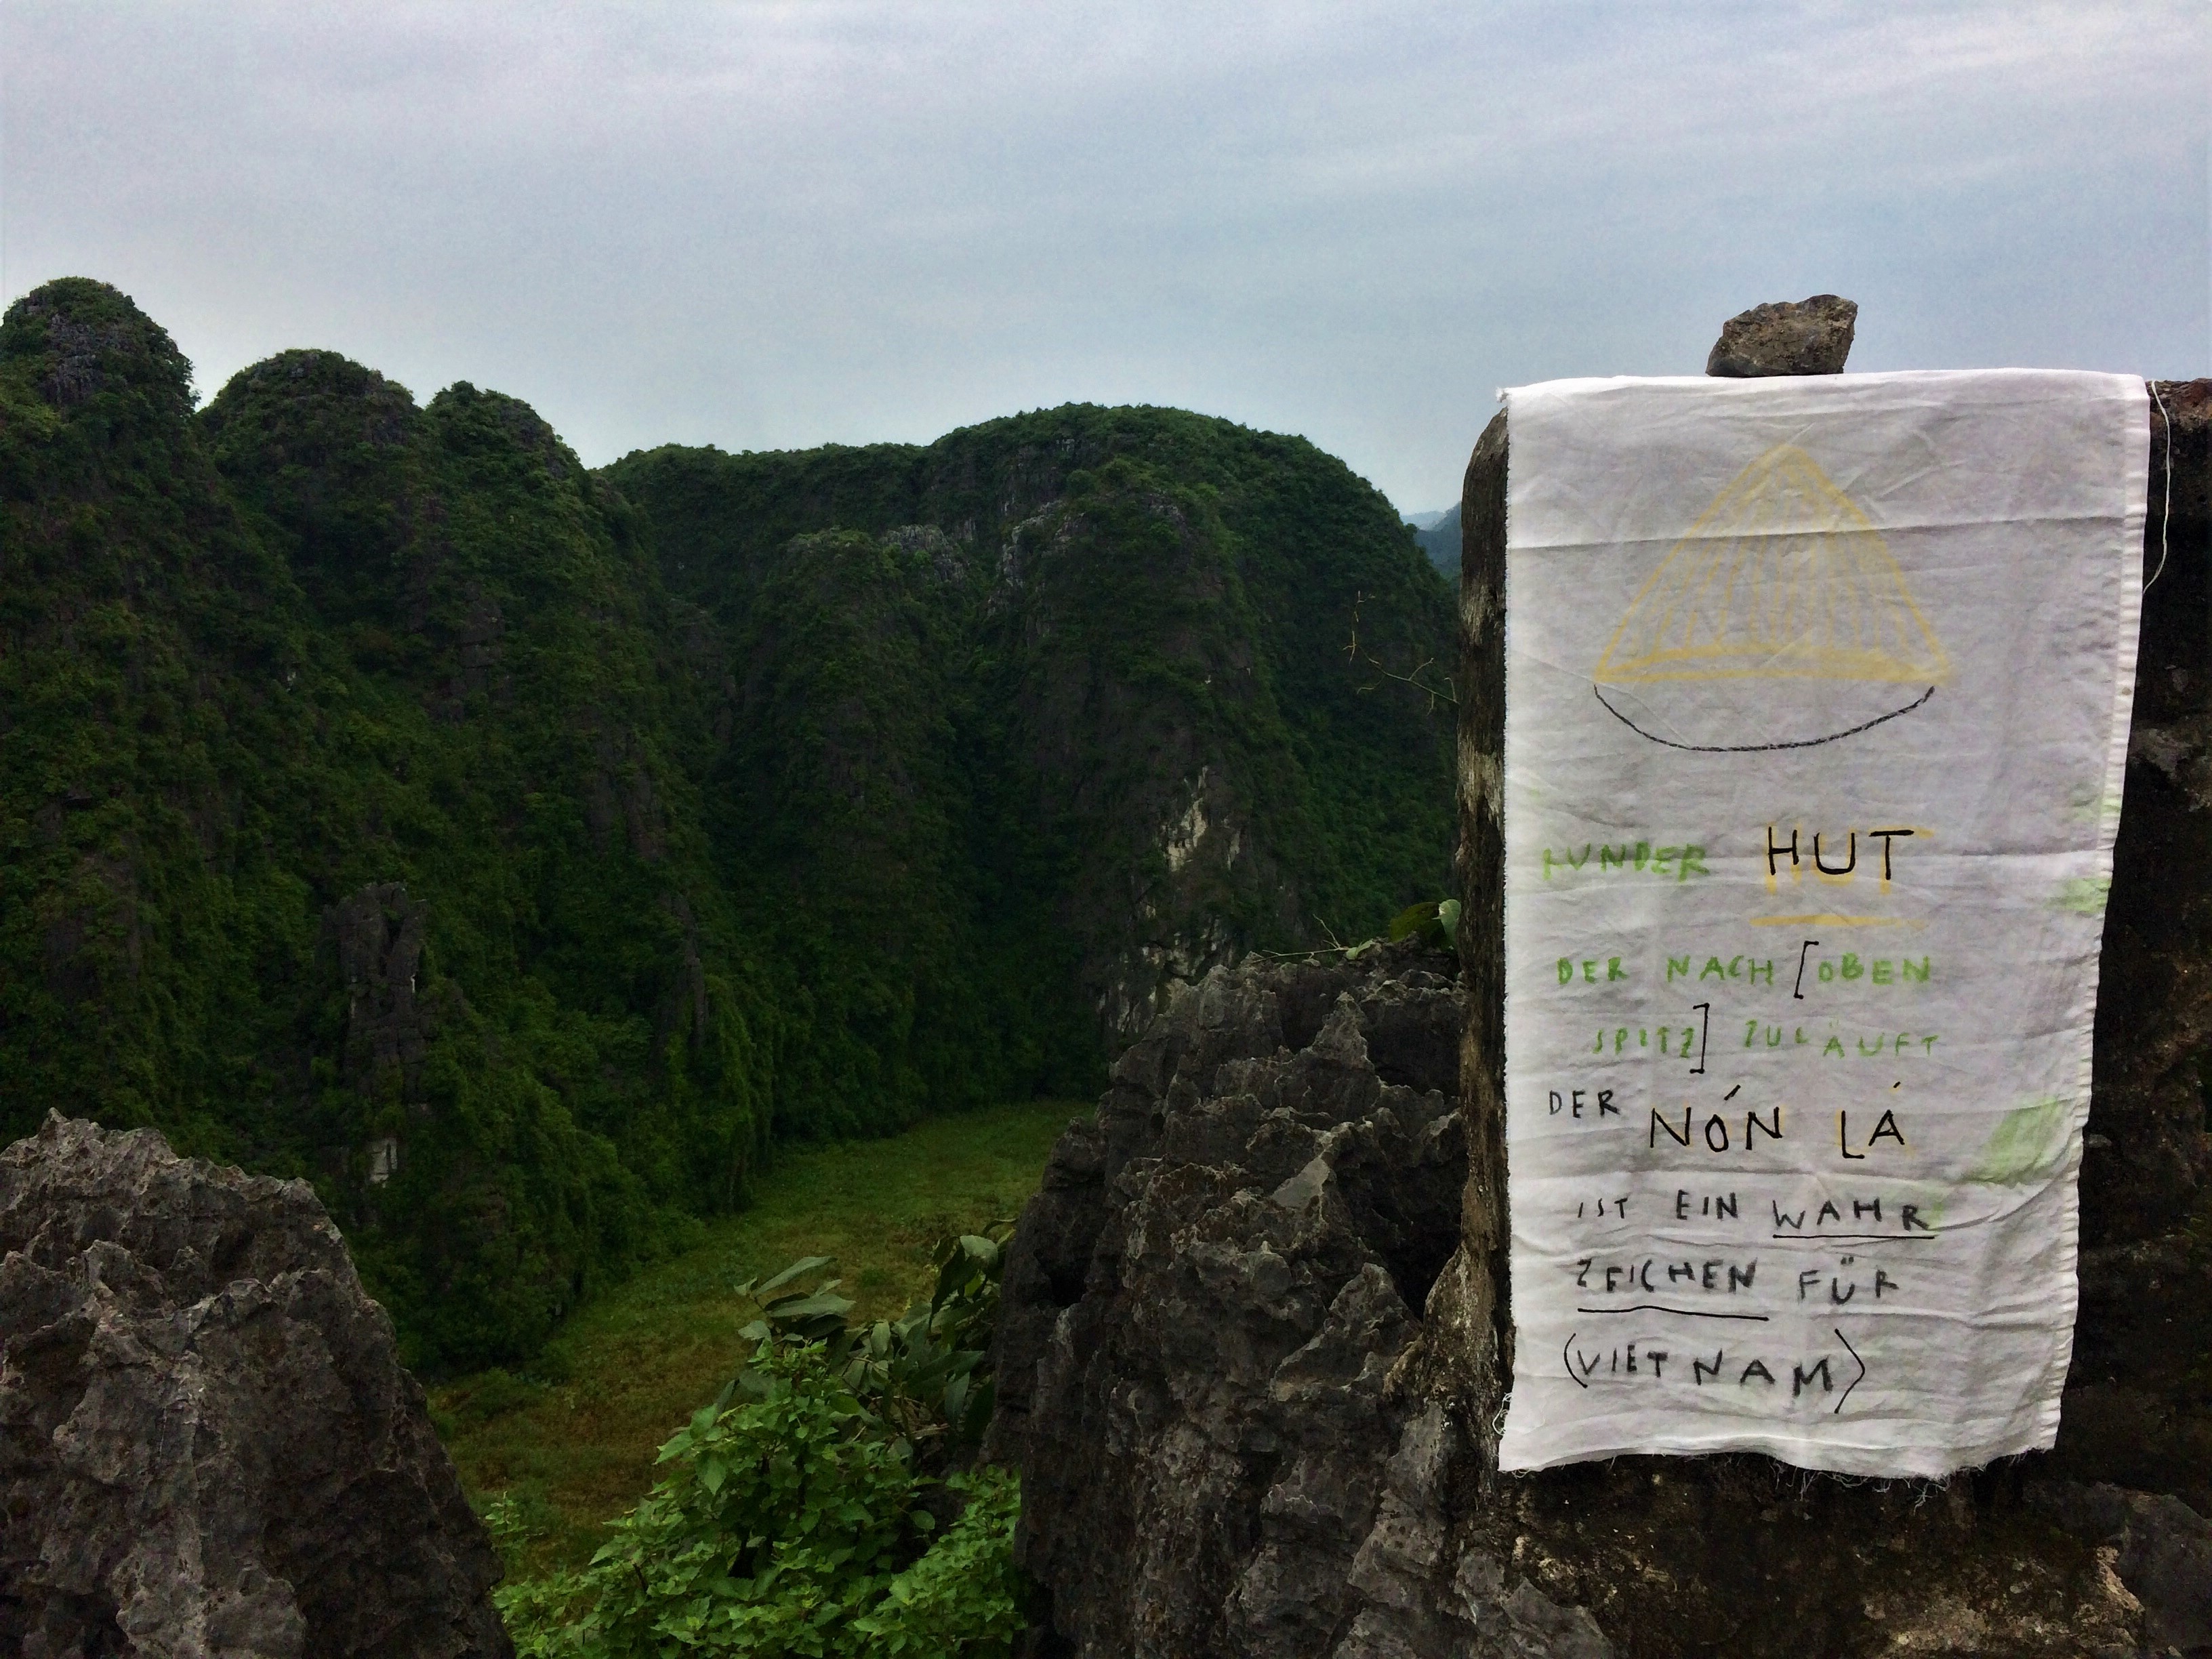 RUNDER HUT
DER NACH [OBEN
SPITZ] ZULÄUFT
DER NÓN LÁ
IST EIN WAHR
ZEICHEN FÜR
(VIETNAM)